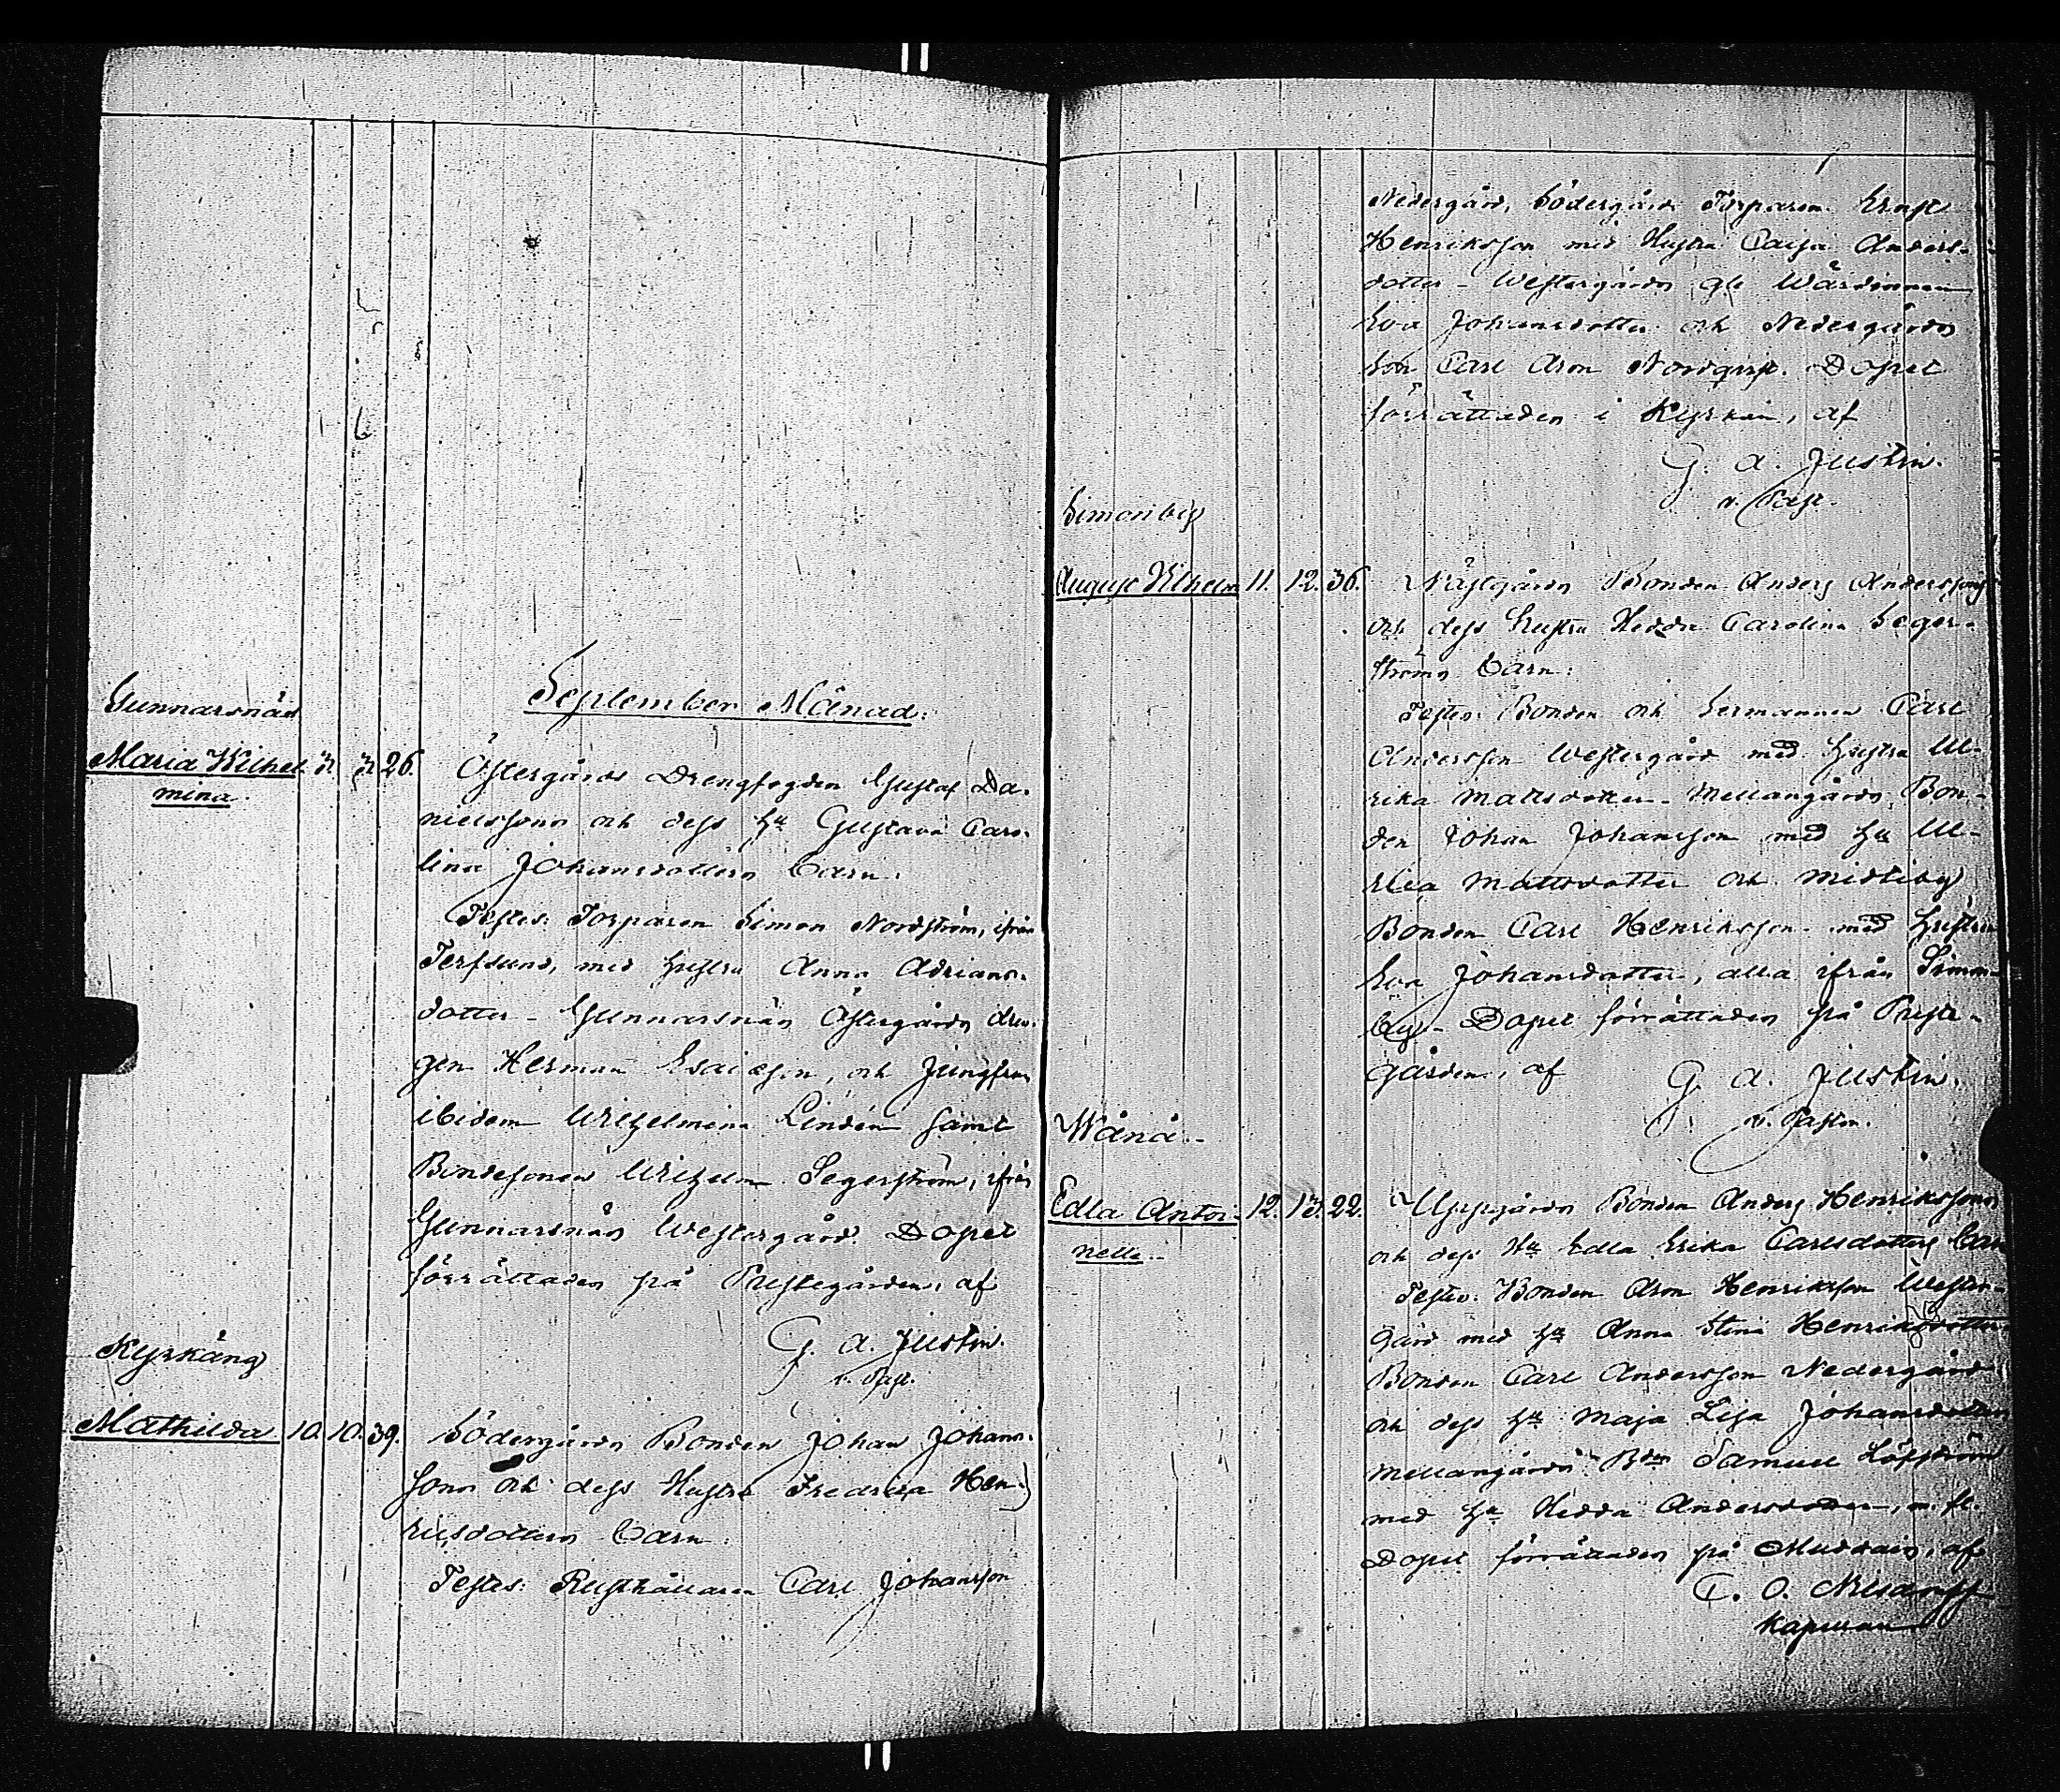 September Månad.
Gunnarsnäs
Maria Wilhel- 3. 3. 26.
mina.
Östergårds Drengfogden Gustaf Da-
nielssons och dess Hu Gustava Caro-
lina Johansdotters Barn.
Testes: Torparen Simon Nordström, ifrån
Terfsund, med Hustru Anna Adrians-
dotter - Gunnarsnäs Östergårds dren-
gen Herman Esaiæson, och Jungfrun
ibidem Wilhelmina Lindén samt
Bondesonen Wilhelm Segerström, ifrån
Gunnarsnäs Westergård. Dopet
förrättades på Prestegården, af
G. A. Justin.
v. Past.
Kyrkäng
Mathilda 10. 10. 39.
Södergårds Bonden Johan Johans-
sons och dess Hustru Fredrica Hen-
ricsdotters Barn.
Testes: Rusthållaren Carl Johansson
Nedergård, Södergårds Torparen Ernst
Henriksson med Hustru Caisa Anders-
dotter - Westergårds gla Wärdinnan
Eva Johansdotter och Nedergårds
Son Carl Aron Nordqvist. Dopet
förrättades i Kyrkan, af
G. A. Justin.
v. Past.
Simonby
August Vilhelm 11. 12. 36.
Nästgårds Bonden Anders Anderssons
och dess Hustru Hedda Carolina Seger-
ströms Barn:
Testes: Bonden och Sexmannen Carl
Andersson Westergård med Hustru Ul-
rika Mattsdotter - Mellangårds Bon-
den Johan Johansson med Hu Ul-
rica Mattsdotter och Mistiby
Bonden Carl Henriksson med Hustrun
Eva Johansdotter, alla ifrån Simon-
by - Dopet förrättades på Preste-
gården, af
G. A. Justin.
v. Pastor.
Wånå.
Edla Antoi- 12. 13. 22.
nette.
Uppgårds Bonden Anders Henrikssons
och dess Hu Edla Erika Carlsdotters Barn
Testes: Bonden Aron Henriksson Wester-
gård med Hu Anna Stina Henriksdotter
Bonden Carl Andersson Nedergård
och dess Hu Maja Lisa Johansdotter
Mellangårds Bdn Samuel Löfström
med Hu Hedda Andersdotter, m. fl.
Dopet förrättades på Muddais, af
C. O.
Kapellan